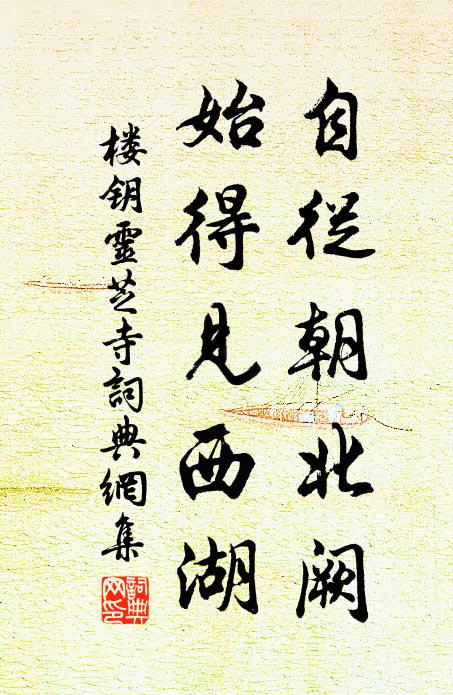 自從朝北闕
始得見西湖
楼钥靈芝寺詞典網集
詞典网印